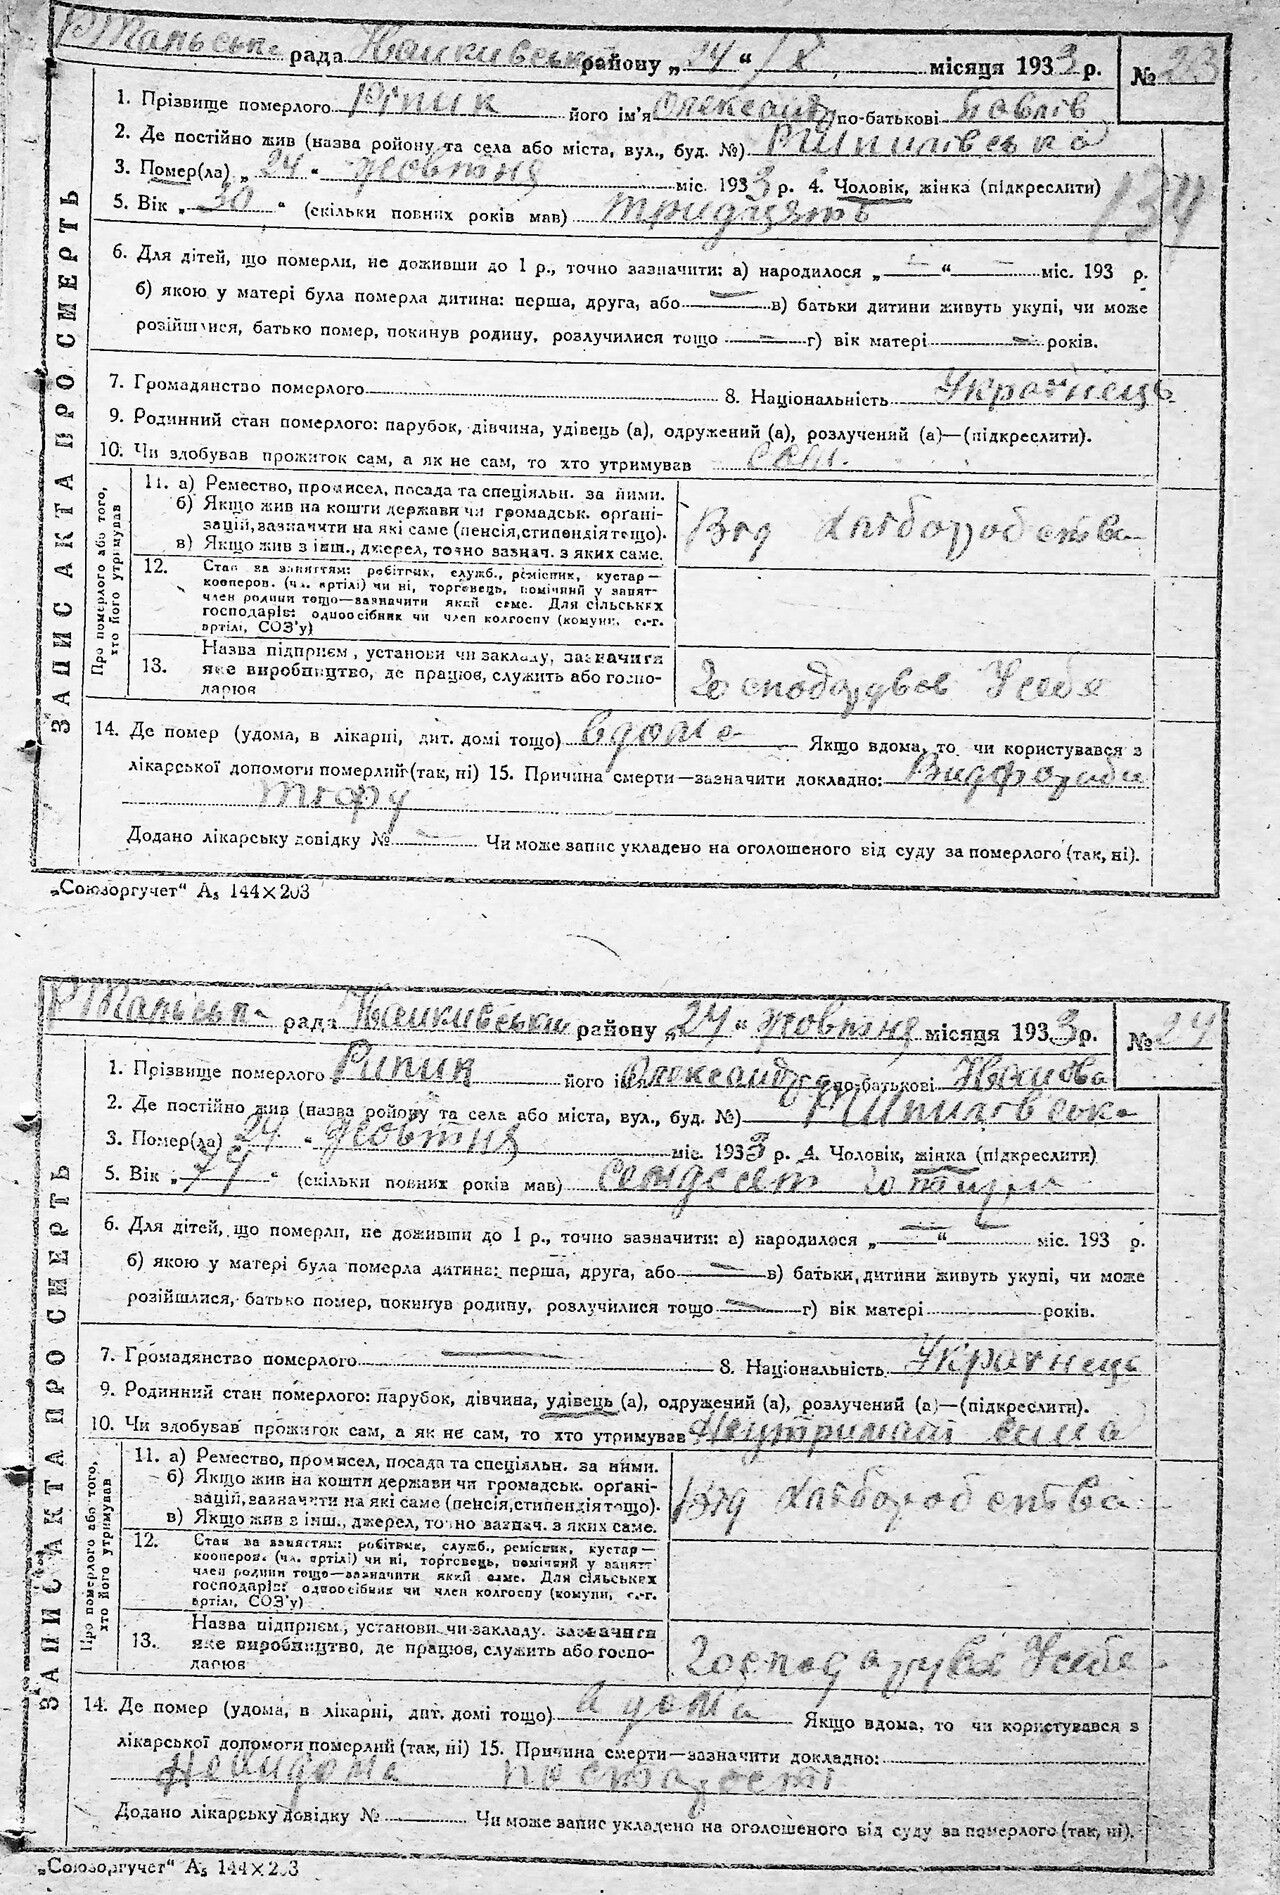 рада Кашкивськ району „24“ /X місяця 1933 р. № 23
1. Прізвище померлого Ріпик його ім'я Олександ по-батькові Павлів
2. Де постійно жив (назва ройону та села або міста, вул., буд. №)
3. Помер(ла) „24“ жовтня міс. 1933 р. 4. Чоловік, жінка (підкреслити)
134
5. Вік „30“ (скільки повних років мав) тридцять
6. Для дітей, що померли, не доживши до 1 р., точно зазначити: а) народилося „—“ — міс. 193 р.
б) якою у матері була померла дитина: перша, друга, або — в) батьки дитини живуть укупі, чи може
розійшлися, батько помер, покинув родину, розлучилися тощо — г) вік матері — років.
7. Громадянство померлого 8. Національність Українець
9. Родинний стан померлого: парубок, дівчина, удівець (а), одружений (а), розлучений (а)—(підкреслити).
10. Чи здобував прожиток сам, а як не сам, то хто утримував сам.
ЗАПИСКА ПРО СМЕРТЬ
Про померлого або того, хто його утримував
11. а) Ремество, промисел, посада та спеціяльн. за ними.
б) Якщо жив на кошти держави чи громадськ. орґані-
зацій, зазначити на які саме (пенсія, стипендія тощо).
в) Якщо жив з інш., джерел, точно зазнач. з яких саме.
Від Хліборобства
12. Стан за заняттям: робітник, служб., ремісник, кустар—
кооперов. (чл. артілі) чи ні, торговець, помічний у занят-
член родини тощо—зазначити який саме. Для сільських
господарів: одноосібник чи член колгоспу (комуни, с.-г.
артілі, СОЗ'у)
13. Назва підприєм., установи чи закладу, зазначити
яке виробництво, де працює, служить або госпо-
дарює
Господарював Усебе
14. Де помер (удома, в лікарні, дит. домі тощо) вдома Якщо вдома, то чи користувався з
лікарської допомоги померлий (так, ні) 15. Причина смерти—зазначити докладно:
тіфу
Додано лікарську довідку № — Чи може запис укладено на оголошеного від суду за померлого (так, ні).
„Союзоргучет“ А₅ 144×203
рада Кашкивськи району „24“ жовтня місяця 1933 р. № 24
1. Прізвище померлого Рипик його ім'я Олександра по-батькові Іванова
2. Де постійно жив (назва ройону та села або міста, вул., буд. №)
3. Помер(ла) 24 „ жовтня міс. 1933 р. 4. Чоловік, жінка (підкреслити)
5. Вік „74“ (скільки повних років мав) семдесят чотири
6. Для дітей, що померли, не доживши до 1 р., точно зазначити: а) народилося „—“ — міс. 193 р.
б) якою у матері була померла дитина: перша, друга, або — в) батьки дитини живуть укупі, чи може
розійшлися, батько помер, покинув родину, розлучилися тощо — г) вік матері років.
7. Громадянство померлого — 8. Національність Українець
9. Родинний стан померлого: парубок, дівчина, удівець (а), одружений (а), розлучений (а)—(підкреслити).
10. Чи здобував прожиток сам, а як не сам, то хто утримував сина
ЗАПИСКА ПРО СМЕРТЬ
Про померлого або того, хто його утримував
11. а) Ремество, промисел, посада та спеціяльн. за ними.
б) Якщо жив на кошти держави чи громадськ. орґані-
зацій, зазначити на які саме (пенсія, стипендія тощо).
в) Якщо жив з інш., джерел, точно зазнач. з яких саме.
Від Хліборобства
12. Стан за заняттям: робітник, служб., ремісник, кустар—
кооперов. (чл. артілі) чи ні, торговець, помічний у занят-
член родини тощо—зазначити який саме. Для сільських
господарів: одноосібник чи член колгоспу (комуни, с.-г.
артілі, СОЗ'у)
13. Назва підприєм., установи чи закладу, зазначити
яке виробництво, де працює, служить або госпо-
дарює
Господарувві Усебе
14. Де помер (удома, в лікарні, дит. домі тощо) дома Якщо вдома, то чи користувався з
лікарської допомоги померлий (так, ні) 15. Причина смерти—зазначити докладно:
Невидома по старості
Додано лікарську довідку № Чи може запис укладено на оголошеного від суду за померлого (так, ні).
„Союзоргучет“ А₅ 144×203